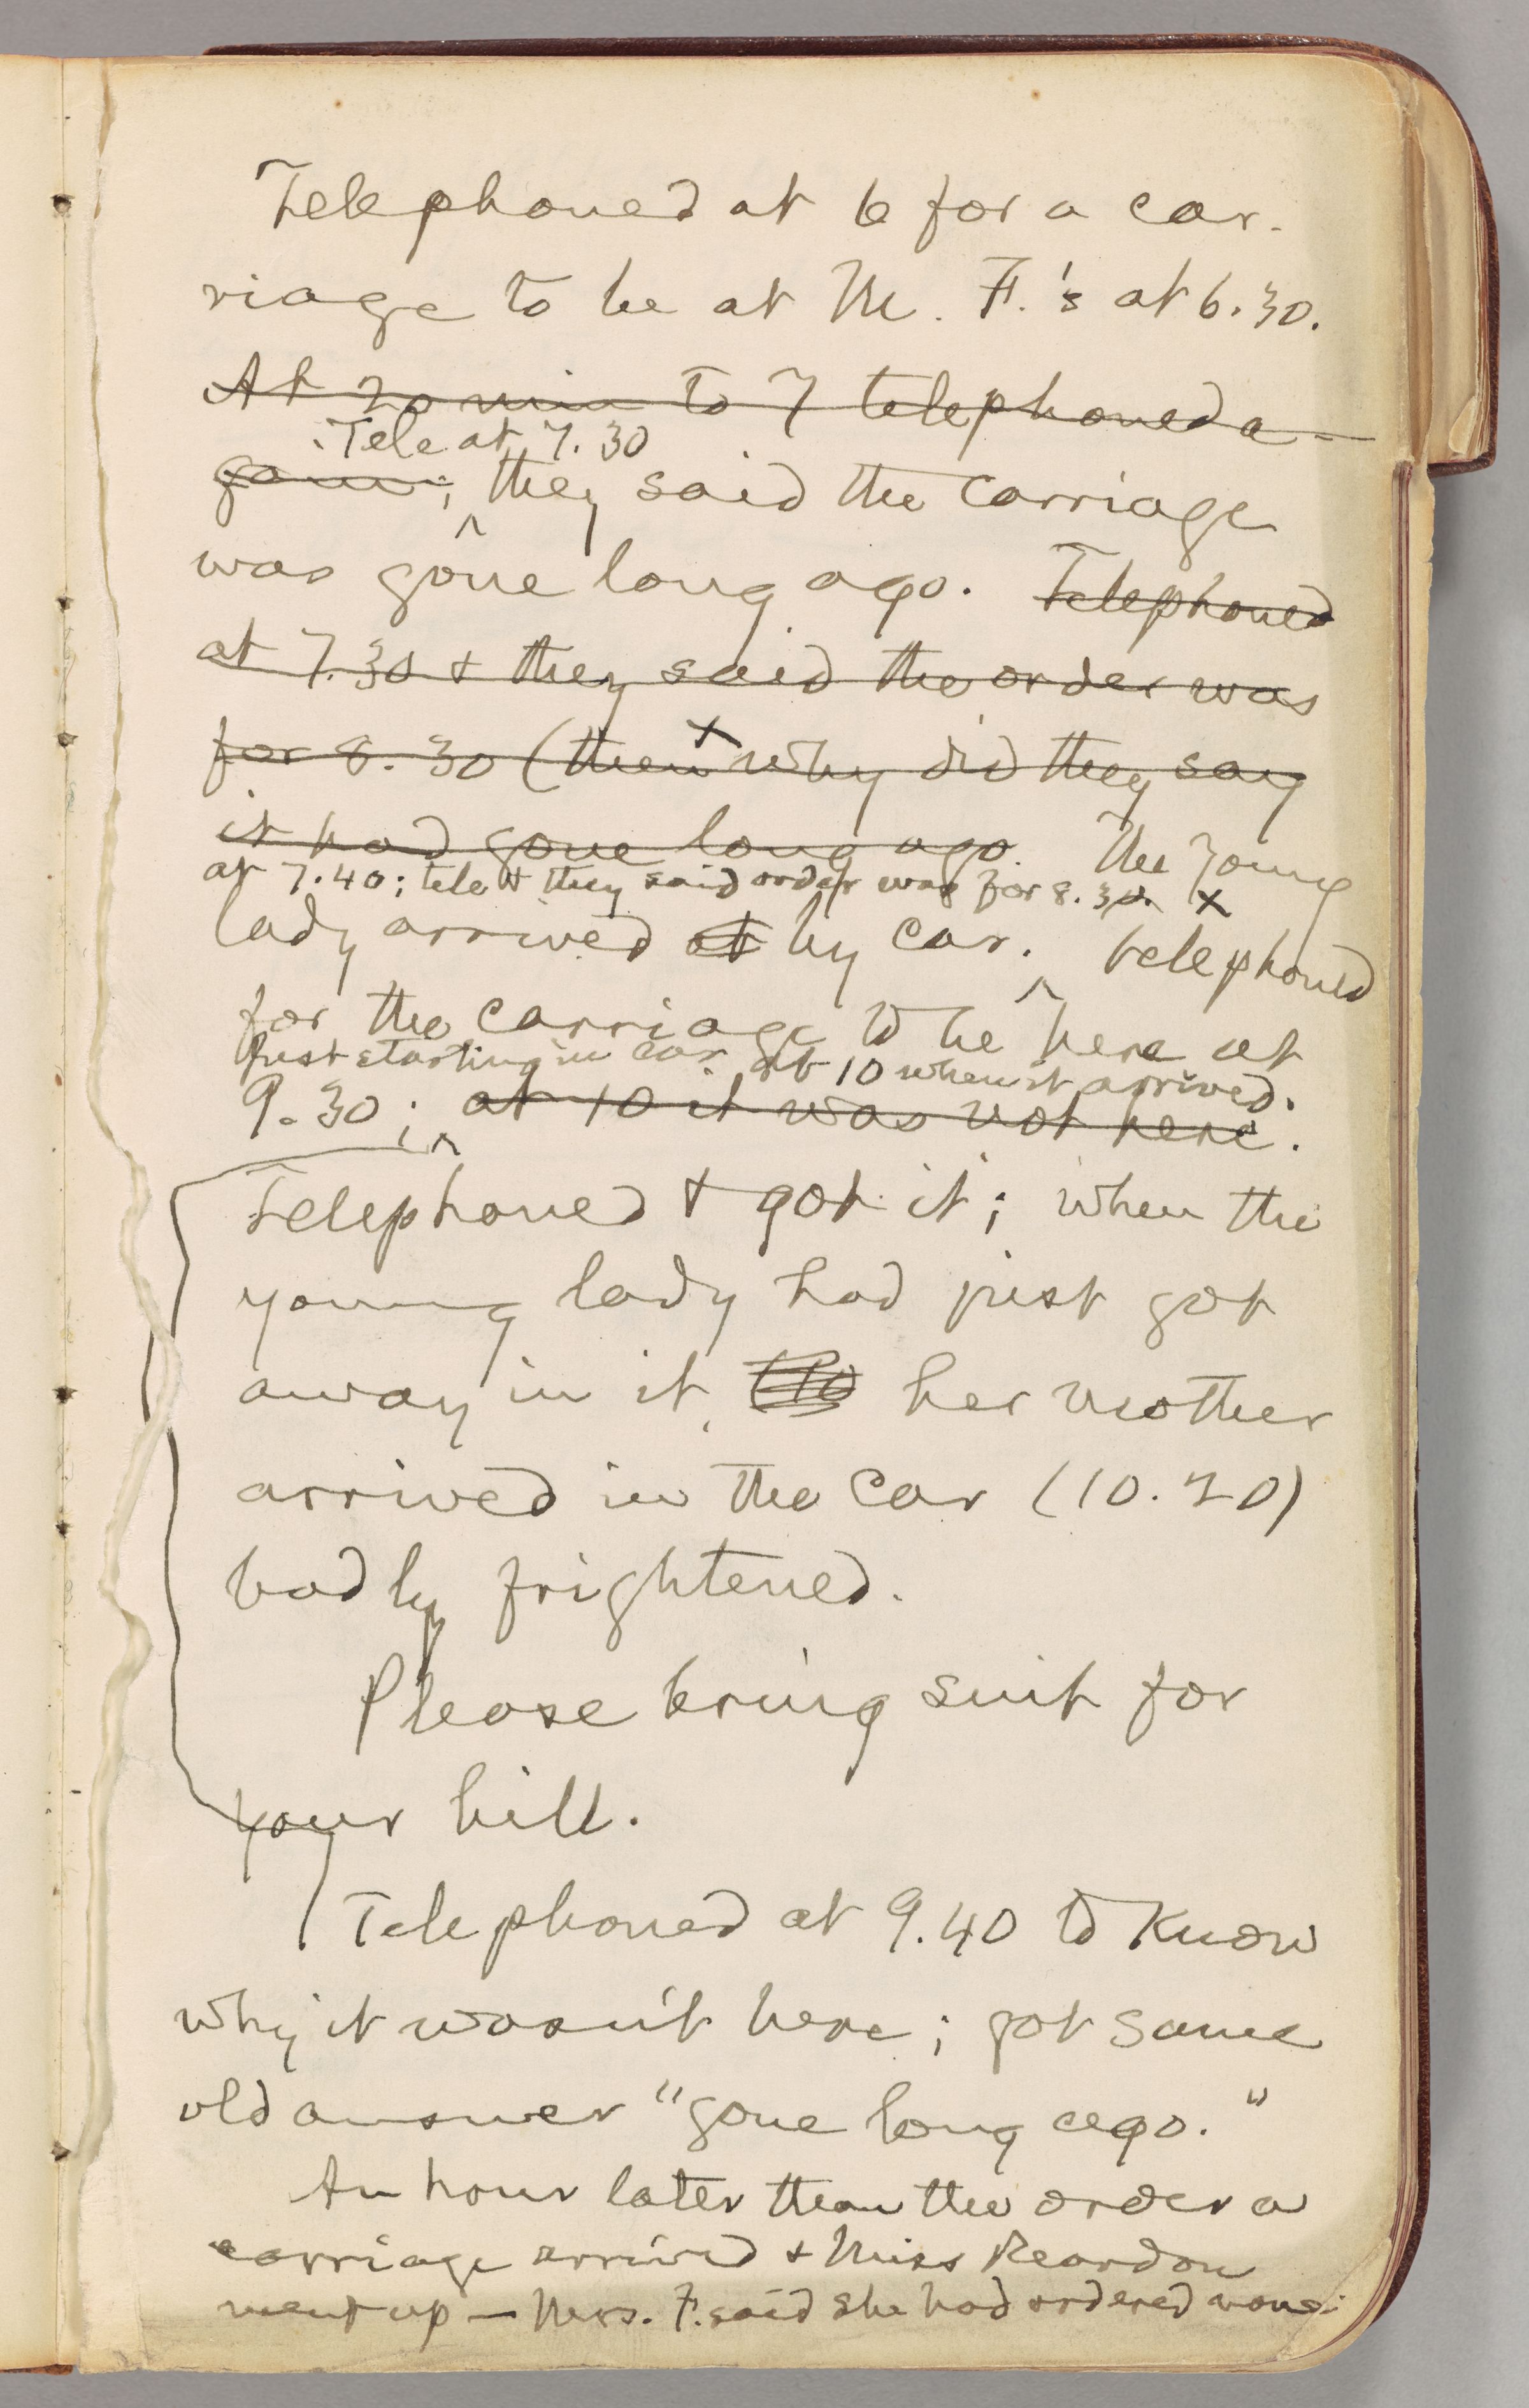 Telephoned at 6 for a car-
riage to be at M. F.'s at 6.30.
At 20 min to 7 telephoned a-
Tele at 7.30
gain; they said the carriage
was gone long ago. Telephoned
at 7.30 & they said the order was
for 8.30 (then x why did they say
it had gone long ago. The young
at 7.40; tele & they said order was for 8.30. x
lady arrived at by car. telephoned
for the carriage to be here at
Just starting in car at 10 when it arrived.
9.30; at 10 it was not here.
Telephoned & got it; when the
young lady had just got
away in it, her mother
arrived in the car (10.20)
badly frightened.
Please bring suit for
your bill.
Telephoned at 9.40 to know
why it wasn't here; got same
old answer "gone long ago."
An hour later than the order a
carriage arrived & Miss Reardon
went up — Mrs. F. said she had ordered none.